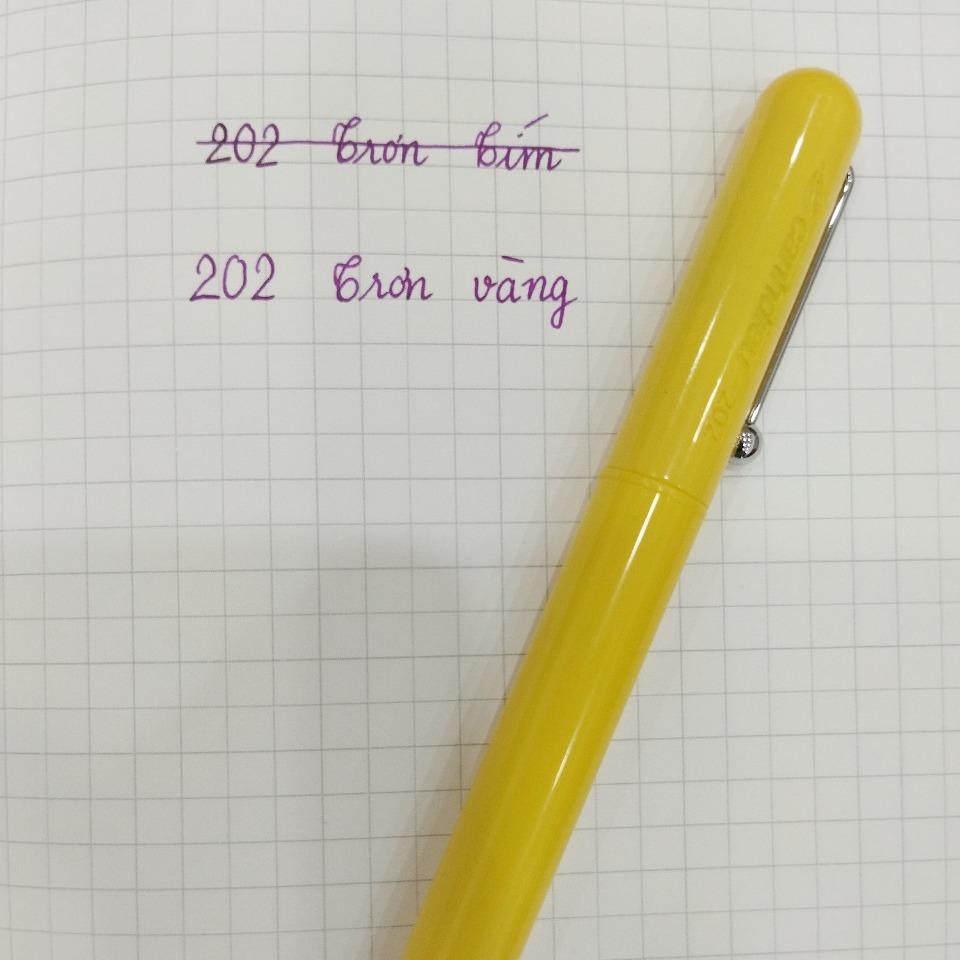 202 trơn tím
202 trơn vàng
canhdieu 202